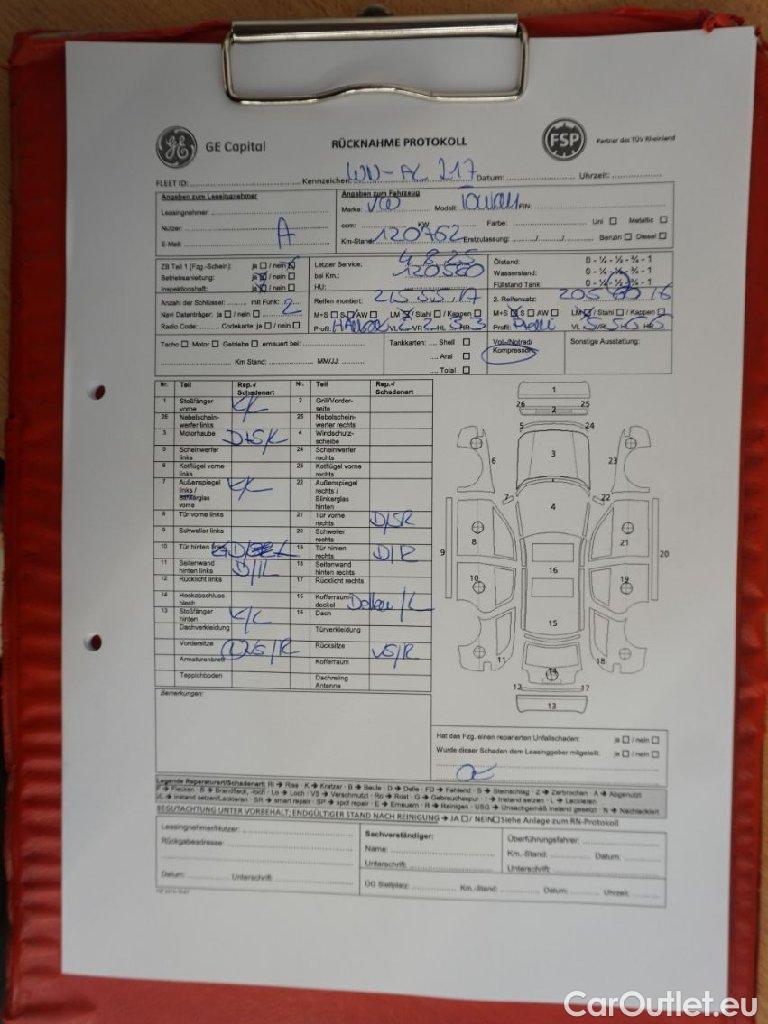 GE Capital
RÜCKNAHME PROTOKOLL
FSP
Partner des TÜV Rheinland
FLEET ID: Kennzeichen: WN-AC 217 Datum: Uhrzeit:
Angaben zum Leasingnehmer
Leasingnehmer
Nutzer: A
E-Mail:
Angaben zum Fahrzeug
Marke: VW Modell: Touran FIN:
ccm: KW Farbe: Uni Metallic
Km-Stand: 120762 Erstzulassung: Benzin Diesel
ZB Teil 1 (Fzg.-Schein): ja / nein
Betriebsanleitung: ja / nein
Inspektionsheft: ja / nein
Anzahl der Schlüssel: mit Funk: 2
Navi Datenträger: ja / nein
Radio Code: Codekarte ja / nein
Letzter Service:
bei Km.: 120560
HU:
Reifen montiert: 215 55 17
M+S S AW LM / Stahl / Kappen
Profil
Ölstand: 0 - ¼ - ½ - ¾ - 1
Wasserstand: 0 - ¼ - ½ - ¾ - 1
Füllstand Tank 0 - ¼ - ½ - ¾ - 1
2. Reifensatz: 205 60 16
M+S S AW LM / Stahl / Kappen
Profil 5 5 6 6
Tacho Motor Getriebe erneuert bei:
Km Stand: MM/JJ:
Tankkarten: Shell
Aral
Total
Vol-/Notrad/
Kompressor
Sonstige Ausstattung:
Nr. Teil Rep./ Schadenart Nr. Teil Rep./ Schadenart
1 Stoßfänger vorne K/L 2 Grill/Vorderseite
26 Nebelscheinwerfer links 25 Nebelscheinwerfer rechts
3 Motorhaube D+S/L 4 Windschutzscheibe
5 Scheinwerfer links 24 Scheinwerfer rechts
6 Kotflügel vorne links 23 Kotflügel vorne rechts
7 Außenspiegel links / Blinkerglas vorne K/L 22 Außenspiegel rechts / Blinkerglas hinten
8 Tür vorne links 21 Tür vorne rechts D/SR
9 Schweller links 20 Schweller rechts
10 Tür hinten links 19 Tür hinten rechts D/R
11 Seitenwand hinten links D/L 18 Seitenwand hinten rechts
12 Rücklicht links 17 Rücklicht rechts
14 Heckabschlussblech 15 Kofferraumdeckel Dellen/L
13 Stoßfänger hinten K/L 16 Dach
Dachverkleidung Türverkleidung
Vordersitze VS/R Rücksitze VS/R
Armaturenbrett Kofferraum
Teppichboden Dachreling Antenne
Bemerkungen:
Hat das Fzg. einen reparierten Unfallschaden: ja / nein
Wurde dieser Schaden dem Leasinggeber mitgeteilt: ja / nein
Legende Reparaturart/Schadenart: Ri → Riss · K → Kratzer · B → Beule · D → Delle · FD → Fehlend · S → Steinschlag · Z → Zerbrochen · A → Abgenutzt
BEGUTACHTUNG UNTER VORBEHALT; ENDGÜLTIGER STAND NACH REINIGUNG → JA / NEIN Siehe Anlage zum RN-Protokoll
Leasingnehmer/Nutzer:
Rückgabeadresse:
Datum: Unterschrift:
Sachverständiger:
Name:
Unterschrift:
Überführungsfahrer:
Km.-Stand: Datum:
Unterschrift:
ÜG Stellplatz: Km.-Stand: Datum: Uhrzeit:
CarOutlet.eu